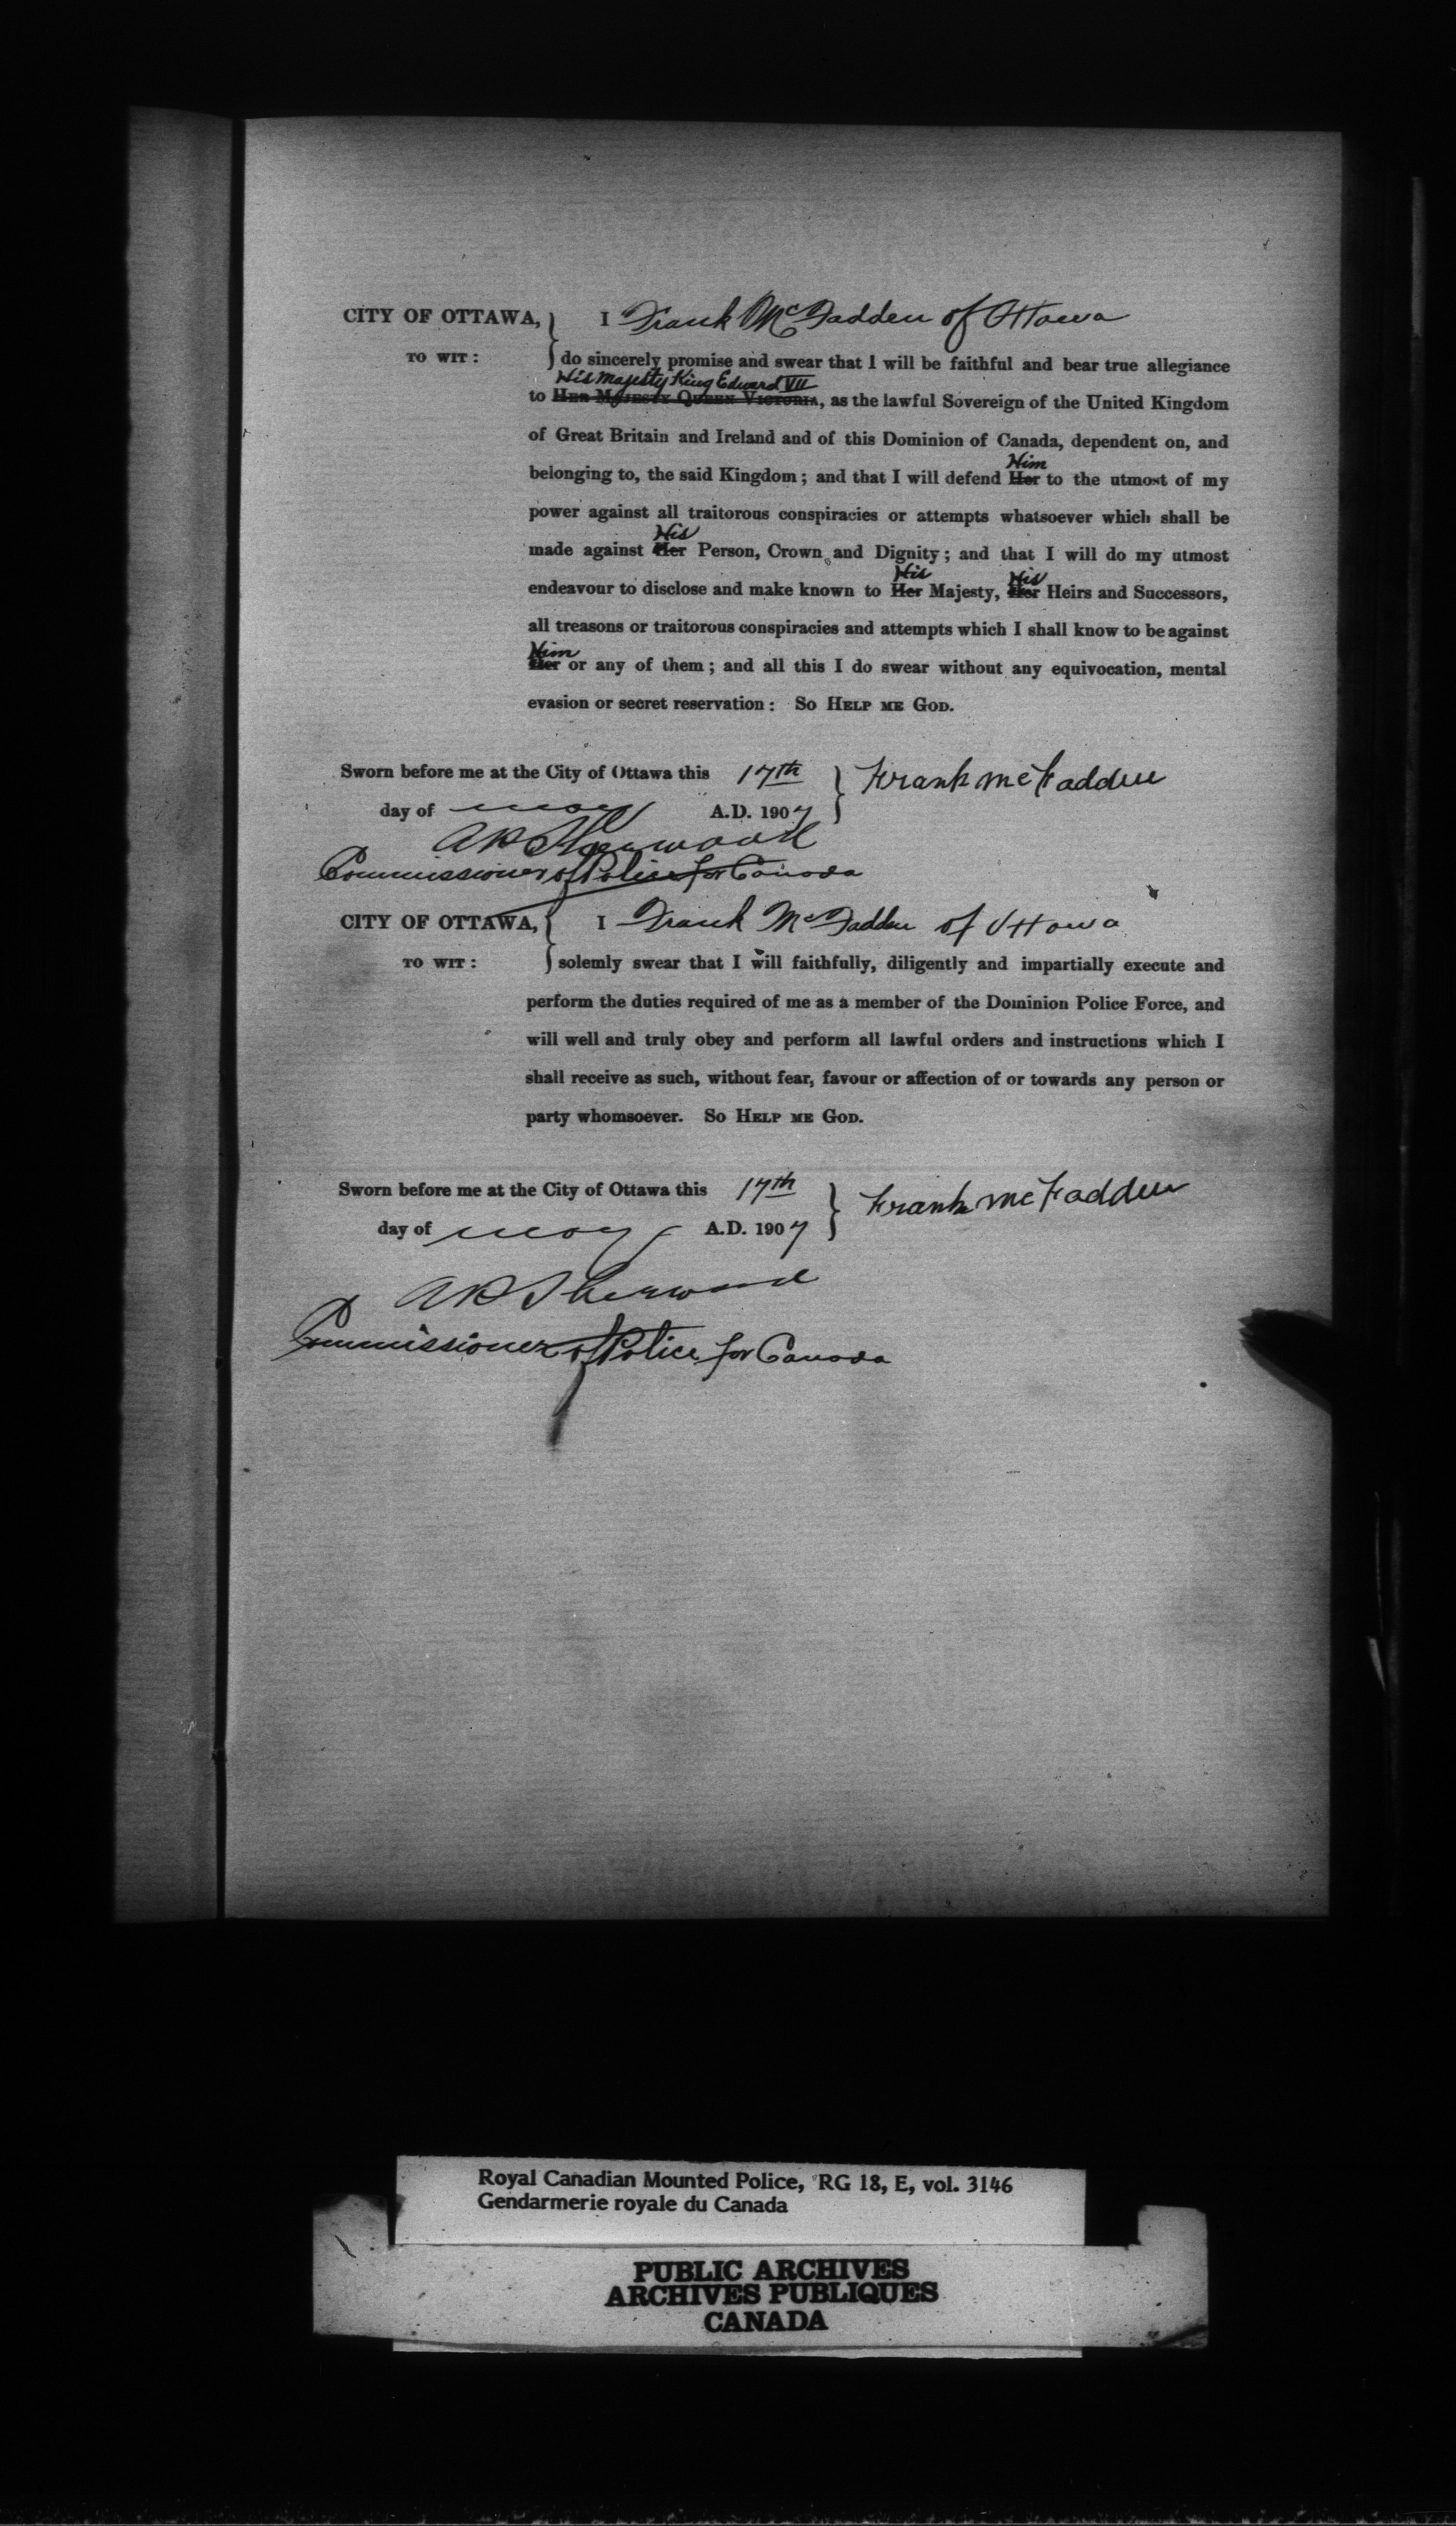 CITY OF OTTAWA, } I Frank McFadden of Ottawa
TO WIT : } do sincerely promise and swear that I will be faithful and bear true allegiance
His Majesty King Edward VII
to HER MAJESTY QUEEN VICTORIA, as the lawful Sovereign of the United Kingdom
of Great Britain and Ireland and of this Dominion of Canada, dependent on, and
Him
belonging to, the said Kingdom ; and that I will defend Her to the utmost of my
power against all traitorous conspiracies or attempts whatsoever which shall be
His
made against Her Person, Crown and Dignity ; and that I will do my utmost
His His
endeavour to disclose and make known to Her Majesty, Her Heirs and Successors,
all treasons or traitorous conspiracies and attempts which I shall know to be against
Him
Her or any of them ; and all this I do swear without any equivocation, mental
evasion or secret reservation : SO HELP ME GOD.
Sworn before me at the City of Ottawa this 17th } Frank McFadden
day of May A.D. 1907
AP Sherwood
Commissioner of Police for Canada
CITY OF OTTAWA, { I Frank McFadden of Ottawa
TO WIT : } solemly swear that I will faithfully, diligently and impartially execute and
perform the duties required of me as a member of the Dominion Police Force, and
will well and truly obey and perform all lawful orders and instructions which I
shall receive as such, without fear, favour or affection of or towards any person or
party whomsoever. SO HELP ME GOD.
Sworn before me at the City of Ottawa this 17th } Frank McFadden
day of May A.D. 1907
AP Sherwood
Commissioner of Police for Canada
Royal Canadian Mounted Police, RG 18, E, vol. 3146
Gendarmerie royale du Canada
PUBLIC ARCHIVES
ARCHIVES PUBLIQUES
CANADA